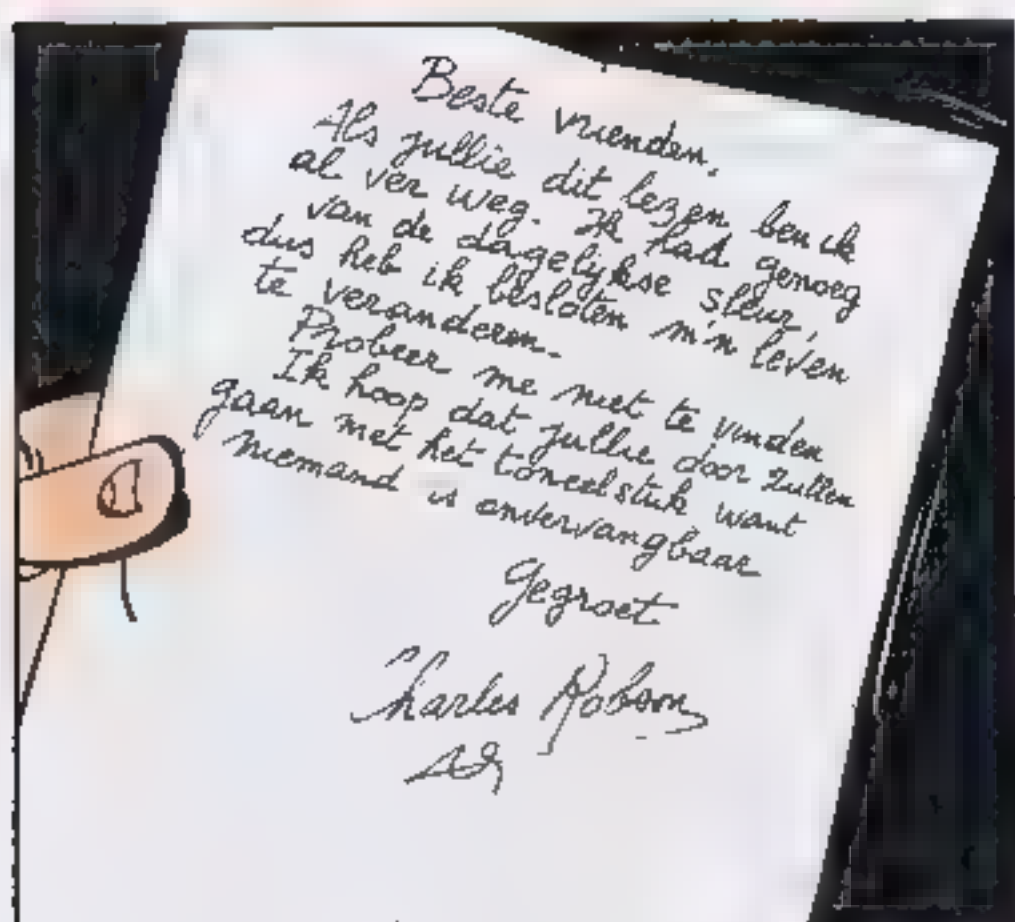 Beste vrienden,
Als jullie dit lezen ben ik
al ver weg. Ik had genoeg
van de dagelijkse sleur,
dus heb ik besloten m'n leven
te veranderen.
Probeer me niet te vinden
Ik hoop dat jullie door zullen
gaan met het toneelstuk want
niemand is onvervangbaar
Gegroet
Charles Robson